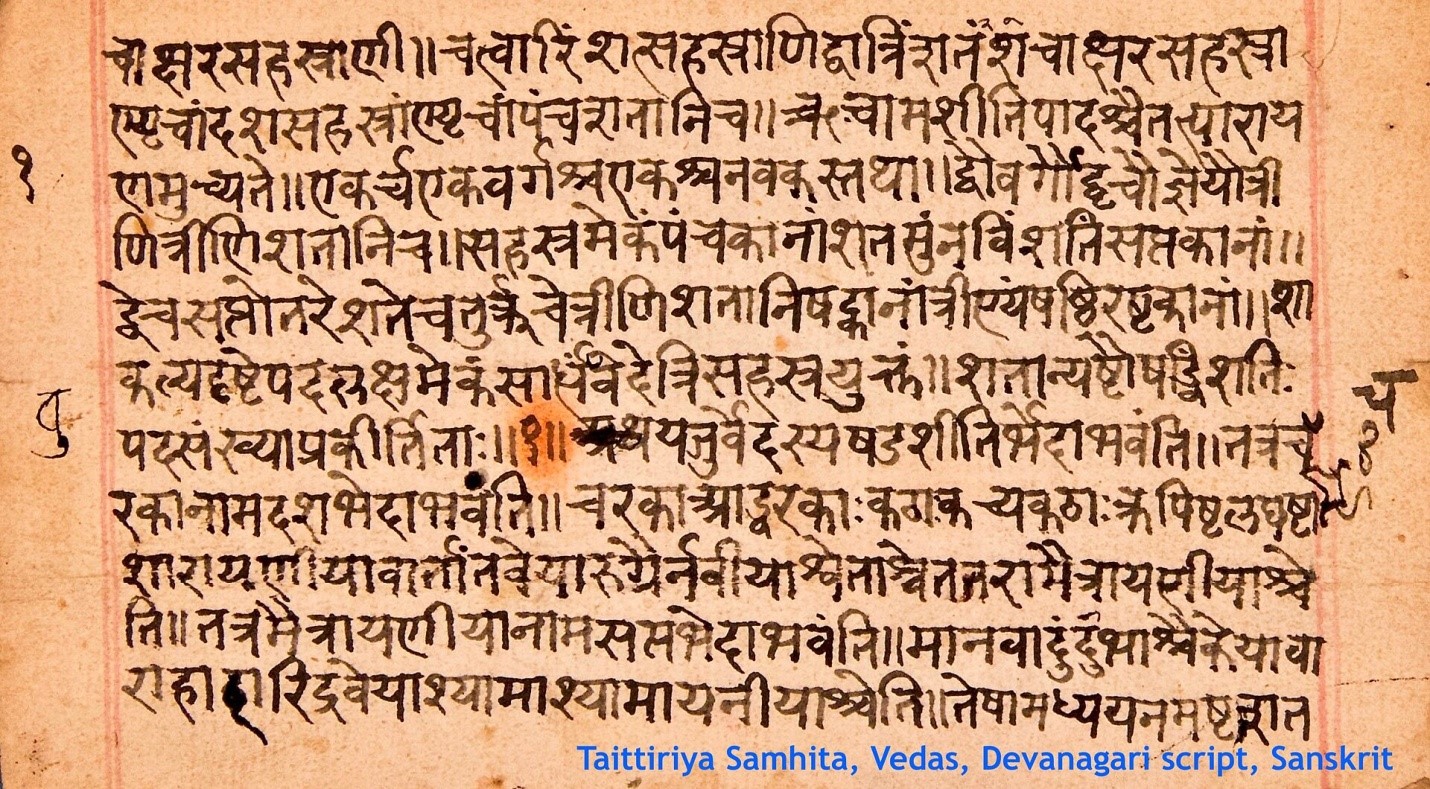 चाक्षरसहस्राणी॥चत्वारिंशत्सहस्राणिद्वात्रिंशतंशचाक्षरसहस्रा
ण्यृचांदशसहस्राण्यृचांपंचशतानिच॥ऋचामशीतिपादश्चैतत्पाराय
१
णमुच्यते॥एकर्चएकवर्गश्चएकश्चनवकस्तथा॥द्वौवर्गौद्वृचौज्ञेयौत्री
णित्रीणिशतानिच॥सहस्रमेकंपंचकानांशतमुनविंशतिंसप्तकानां॥
द्वेचसप्तोतरेशतेचतुर्ऋचेत्रीणिशतानिषट्कानांत्रीण्यंषष्ठिरष्टकानां॥शा
कल्यदृष्टेपदलक्षमेकंसार्धंवेदेत्रिसहस्रयुक्तं॥शतान्यष्टौषड्विंशतिः
पदसंख्याप्रकीर्तिताः॥१॥अथयजुर्वेदस्यषडशीतिर्भेदाभवंति॥तत्रच
रकानामदशभेदाभवंति॥चरकाआह्वरकाःकठाकच्यकठाःकपिष्टल
शारायणीयावार्तांतवेया श्वेताश्वेततरामैत्रायणीयाश्चे
ति॥तत्रमैत्रायणीयानामसप्तभेदाभवंति॥मानवादुंदुभाश्चैकेयावा
राहाहारिद्रवेयाश्यामाश्यामायनीयाश्चेति॥तेषामध्ययनमष्टशत
Taittiriya Samhita, Vedas, Devanagari script, Sanskrit